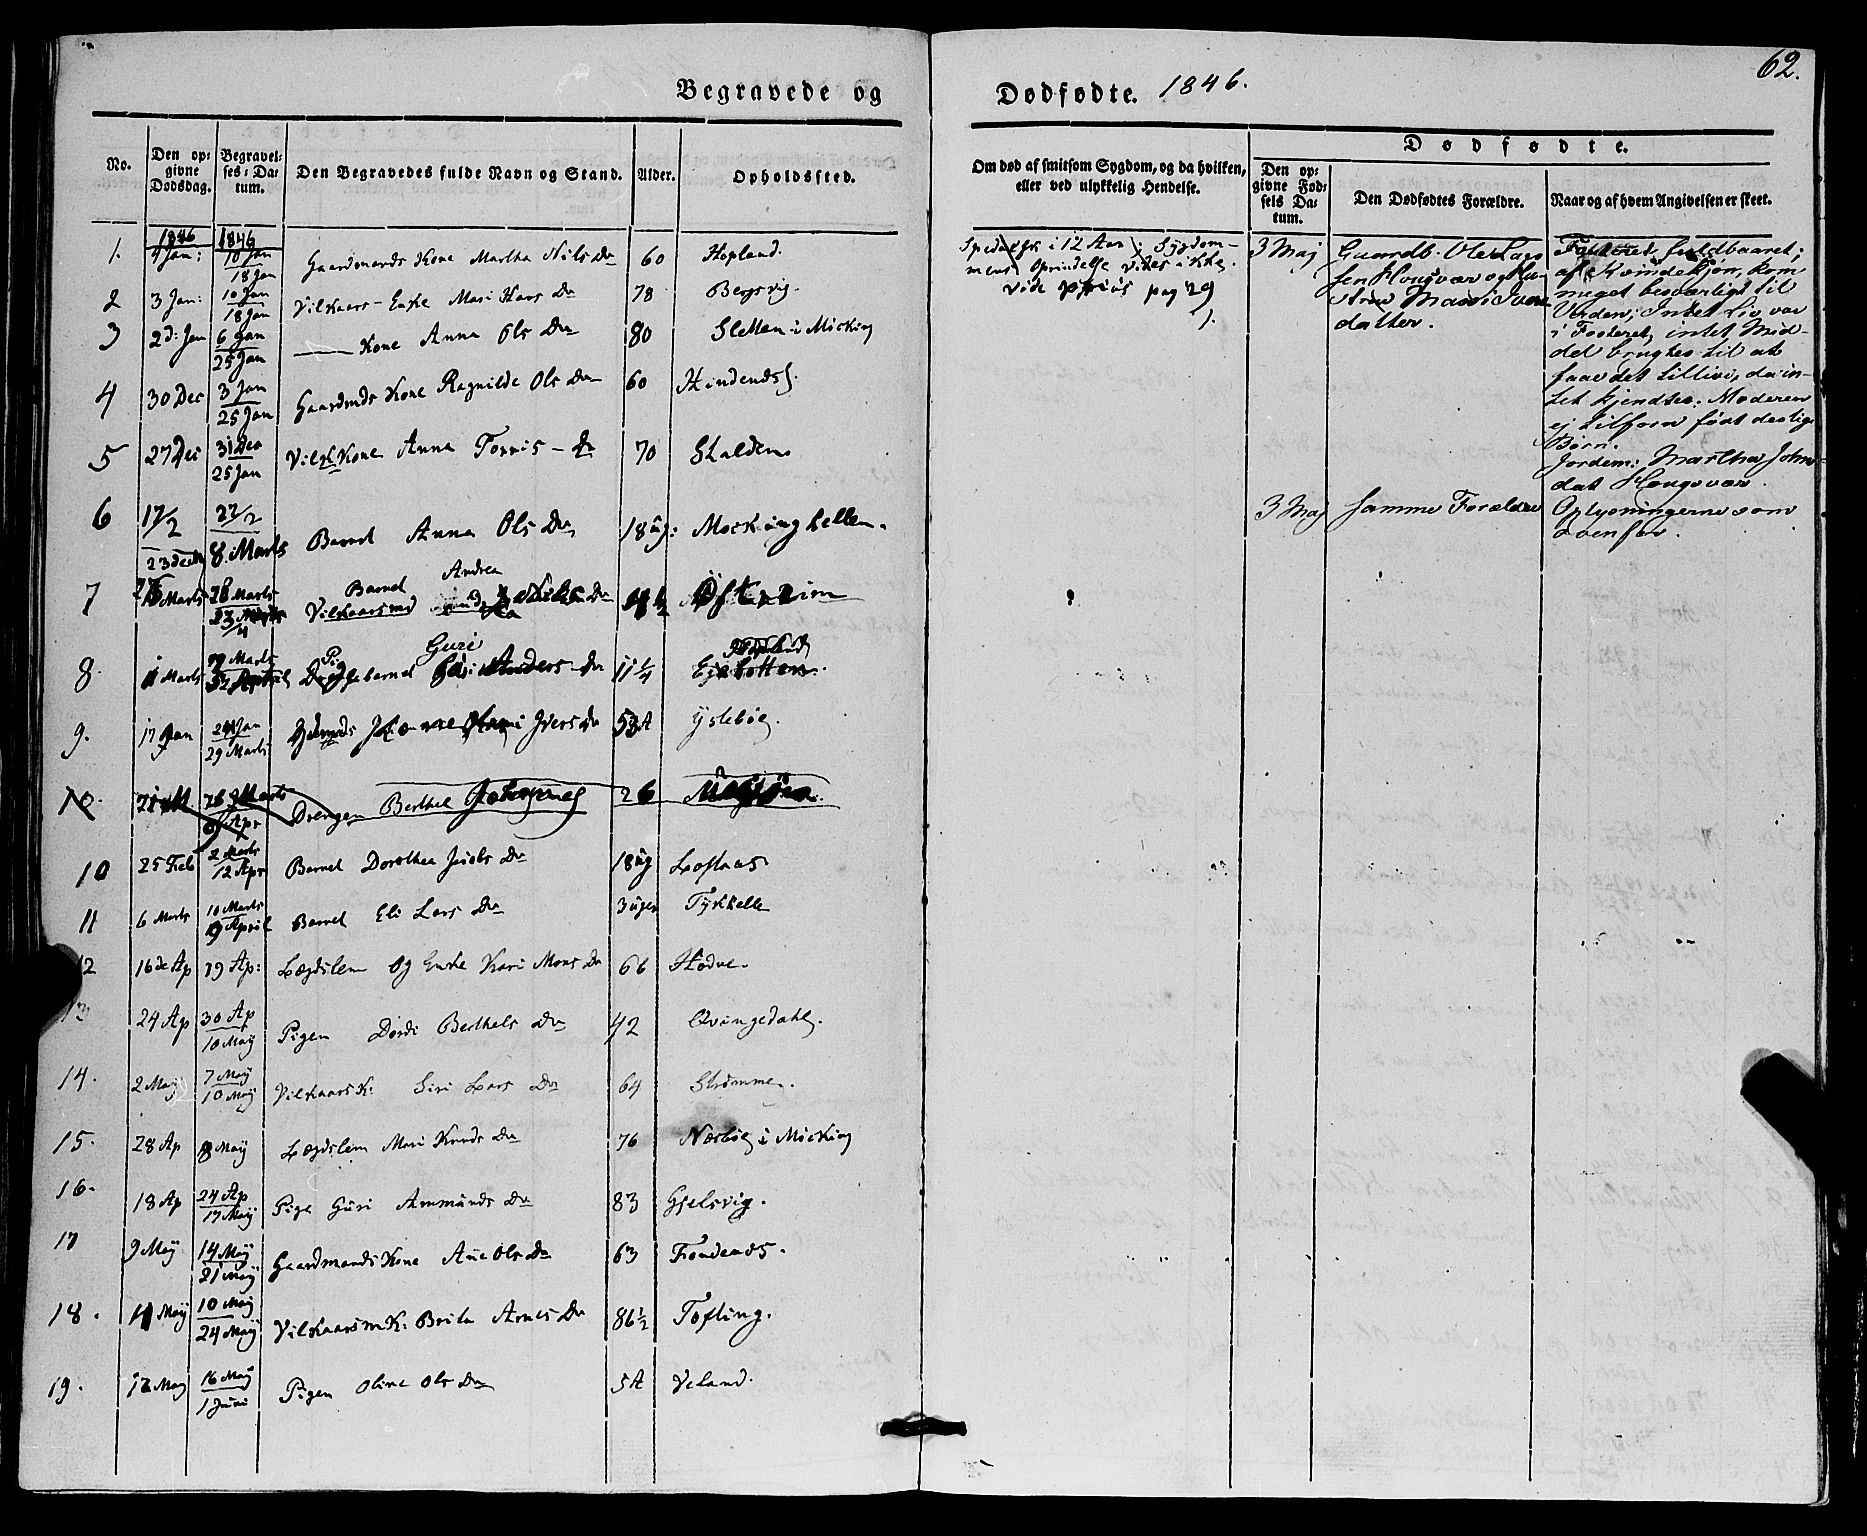 62.
Begravede og Dødfødte. 1846.
No.
Den opgivne Dødsdag.
Begravelses-Datum.
Den Begravedes fulde Navn og Stand.
Alder.
Opholdssted.
Om død af smitsom Sygdom, og da hvilken, eller ved ulykkelig Hendelse.
Dødfødte.
Den opgivne Fødsels Datum.
Den Dødfødtes Forældre.
Naar og af hvem Angivelsen er skeet.
1846 1846
1. 4 Jan: 10 Jan 18 Jan Gaardmands Kone Martha Nils Dr 60 Hopland.
2 3 Jan: 10 Jan 18 Jan Vilkaars-Enke Mari Hans Dr 78 Bergsvig.
3 2d: Jan 6 Jan 25 Jan —— Kone Anna Ols Dr 80 Sletten i Mocking
4 30 Dec 3 Jan 25 Jan Gaardmds Kone Ragnilde Ols Dr 60 Hindenes.
5 27 Dec 31 Dec 25 Jan Vilk Kone Anna Tornis-Dr 70 Skalden
6 17/2 22/2 8 Marts Barnet Anna Ols Dr 18 ug: Mockinghellen.
7 Marts 28 Marts Barnet Andrea Nils Dr
8. 11 Marts Marts Guri Anders-Dr 11 1/4
9. 17 Jan 24 Jan 29 Marts Ivers Dr 53 A Ystebøe.
10. Drengen Berthel Johannes 26
10 25 Feb 2 Marts 12 Apr Barnet Dorothea Jacobs Dr 18 ug Loftaas
11 6 Marts 10 Marts 19 April Barnet Eli Lars Dr 3 uger Tyskhelle
12 16de Ap 19 Ap: Lægdslem og Enke Kari Mons Dr 66 Hodne.
13 24 Ap 30 Ap 10 Maij Pigen Dordi Berthels Dr 42 Qvingedahl.
14. 2 Maij 7 Maij 10 Maij Vilkaars K: Siri Lars Dr 64 Strømme.
15. 28 Ap 8 Maij Lægdslem Mari Knuds Dr 76 Nesbøe i Mocking
16. 18 Ap 24 Ap 17 Maij Pige Guri Ammunds Dr 83 Gjelsvig.
17 9 Maij 14 Maij 21 Maij Gaardmands Kone Ane Ols Dr 63 Tondenes.
18. 4 Maij 10 Maij 24 Maij Vilkaarsm K: Brita Arnes Dr 86 1/2 Tofting.
19. 12 Maij 16 Maij 1 Juni Pigen Oline Ols Dr 5 A Veland.
Spedalsk i 12 Aar; Sygdom-
mens Oprindelse vides ikke.
vide prius pag 29
3 Maj Gaardb. Ole Lars
sen Hougsvær og Hu-
stru Mari Ivers
datter.
Fosteret fuldbaaret;
af Kvindekjøn, kom
meget besværligt til
Verden; Intet Liv var
i Fosteret, intet Mid-
del brugtes til at
faae det tillive, da in-
tet kjendtes. Moderen
ej tilforn født deslige
Børn.
Jordem: Martha Johns-
dat Hougsvær.
3 Maj Samme Forældre Oplysningerne som
ovenfor.